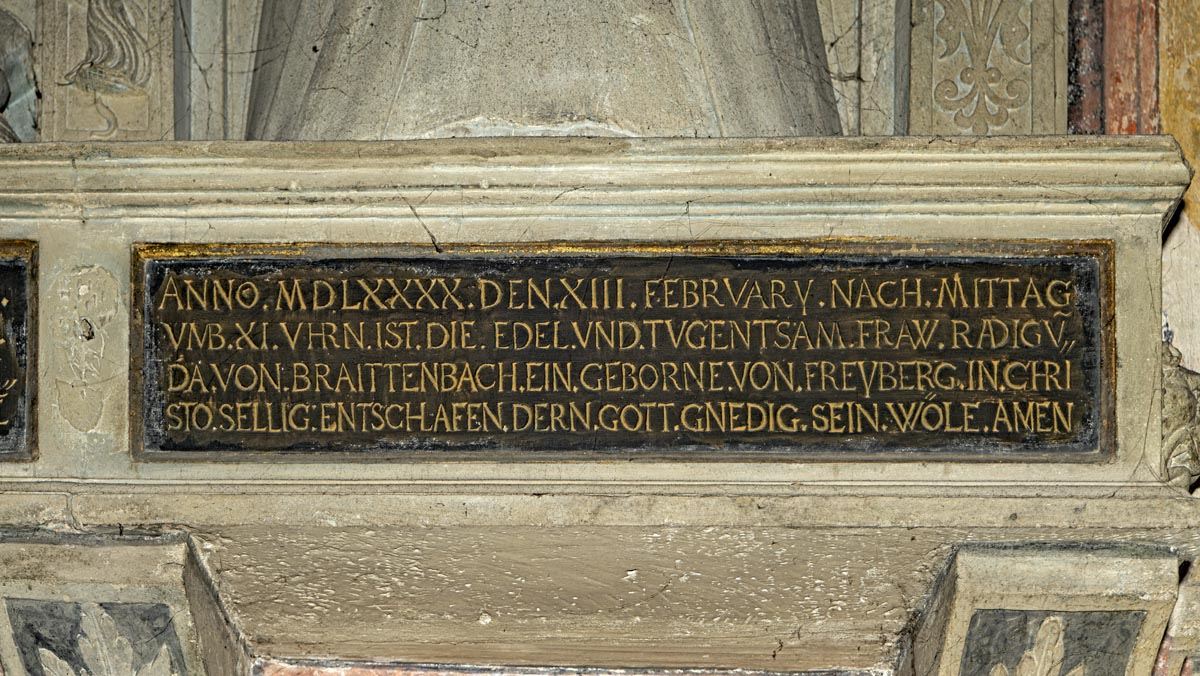 ANNO. MDLXXXX. DEN. XIII. FEBRVARY. NACH. MITTAG
VMB. XI. VHRN. IST. DIE. EDEL. VND. TVGENTSAM. FRAW. RADIGV̄„
DA. VON. BRAITTENBACH. EIN. GEBORNE. VON. FREYBERG. IN. CHRI
STO. SELLIG. ENTSCHAFEN. DERN. GOTT. GNEDIG. SEIN. WÖLE. AMEN